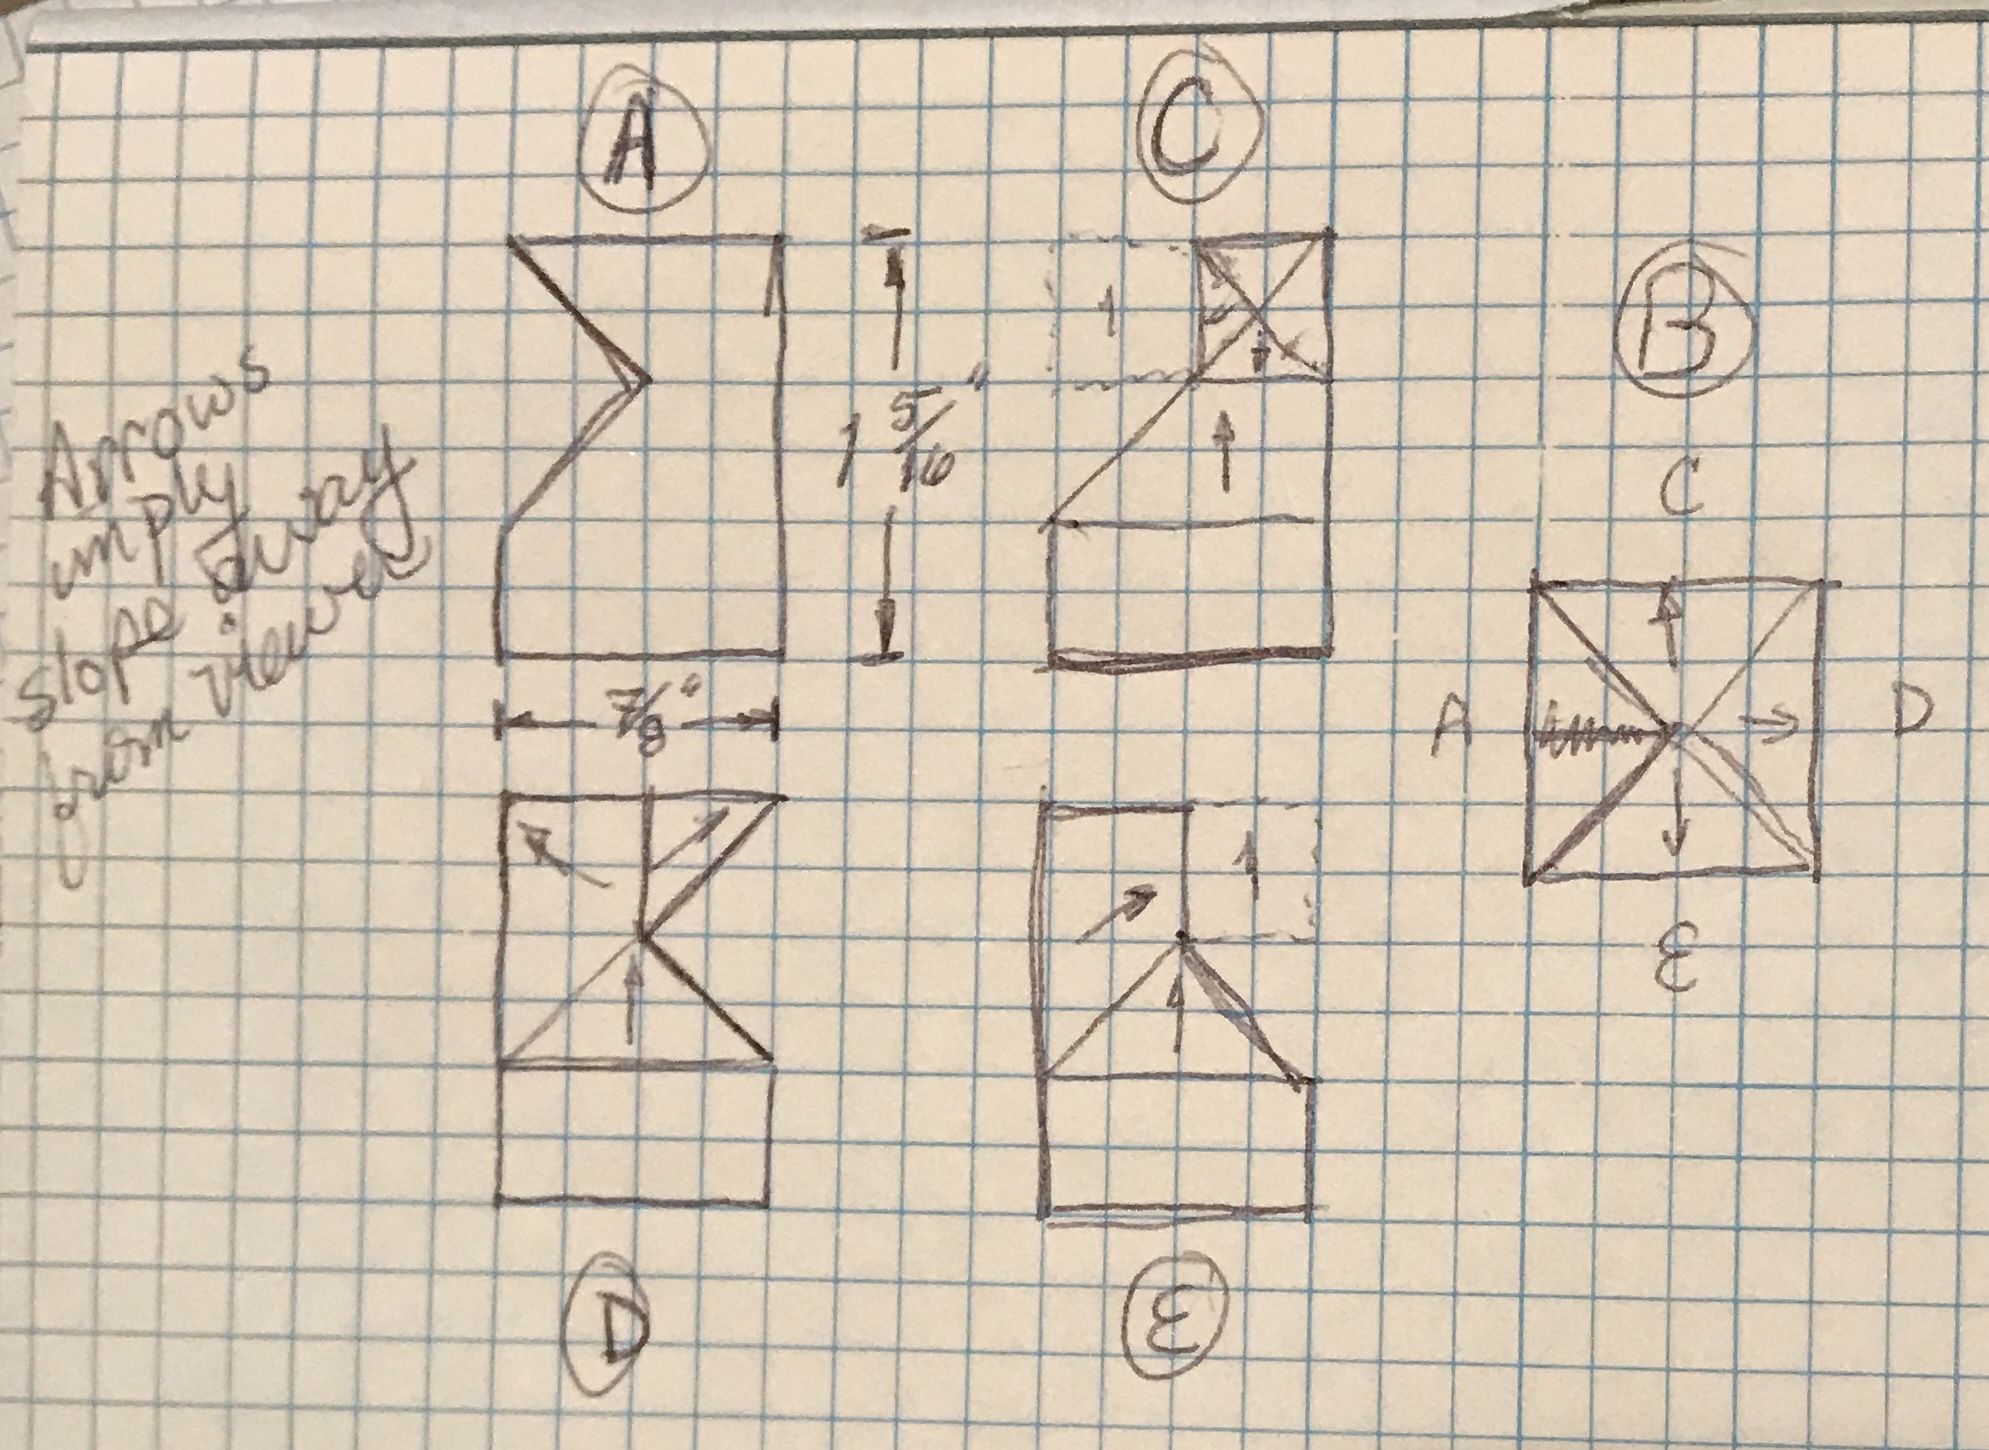 A
C
B
Arrows
imply
slope away
from viewer
1 5/16"
1
7/8"
C
A
D
E
1
D
E